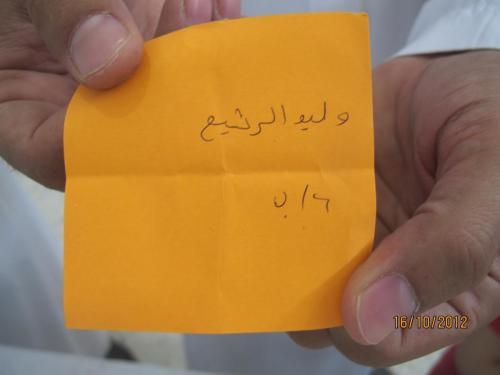 وليد الرشيع
٦/ب
16/10/2012